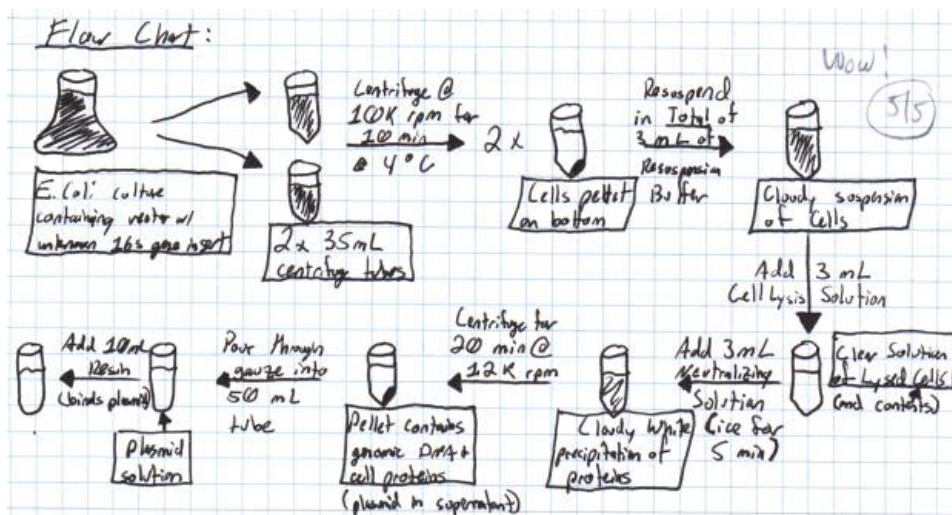 Flow Chart:
Wow!
5/5
E. Coli culture
containing vector w/
unknown 16s gene insert
2 x 35mL
centrifuge tubes
Centrifuge @
10K rpm for
10 min
@ 4°C
2 x
Cells pellet
on bottom
Resuspend
in Total of
3 mL of
Resuspension
Buffer
Cloudy suspension
of Cells
Add 3 mL
Cell Lysis Solution
Clear Solution
of Lysed Cells
(and contents)
Add 3mL
Neutralizing
Solution
(ice for
5 min)
Cloudy White
precipitation of
proteins
Centrifuge for
20 min @
12K rpm
Pellet contains
genomic DNA &
cell proteins
(plasmid in supernatant)
Pour through
gauze into
50 mL
tube
plasmid
solution
Add 10mL
Resin
(binds plasmid)